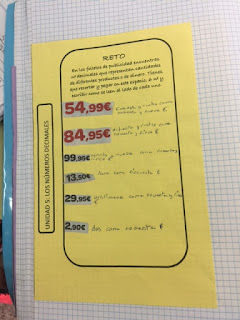 RETO
En los folletos de publicidad encuentras
nº decimales que representan cantidades
de diferentes productos o de dinero. Tienes
que recortar y pegar en este espacio 6 nº y
escribir como se leen al lado de cada uno
54,99€ cincuenta y cuatro coma
noventa y nueve €
84,95€ ochenta y cuatro coma
noventa y cinco €
99,95€ noventa y nueve coma noventa y
cinco €
13,50€ trece coma cincuenta €
29,95€ veintinueve coma noventa y cinco
€
2,90€ dos coma noventa €
UNIDAD 5: LOS NÚMEROS DECIMALES